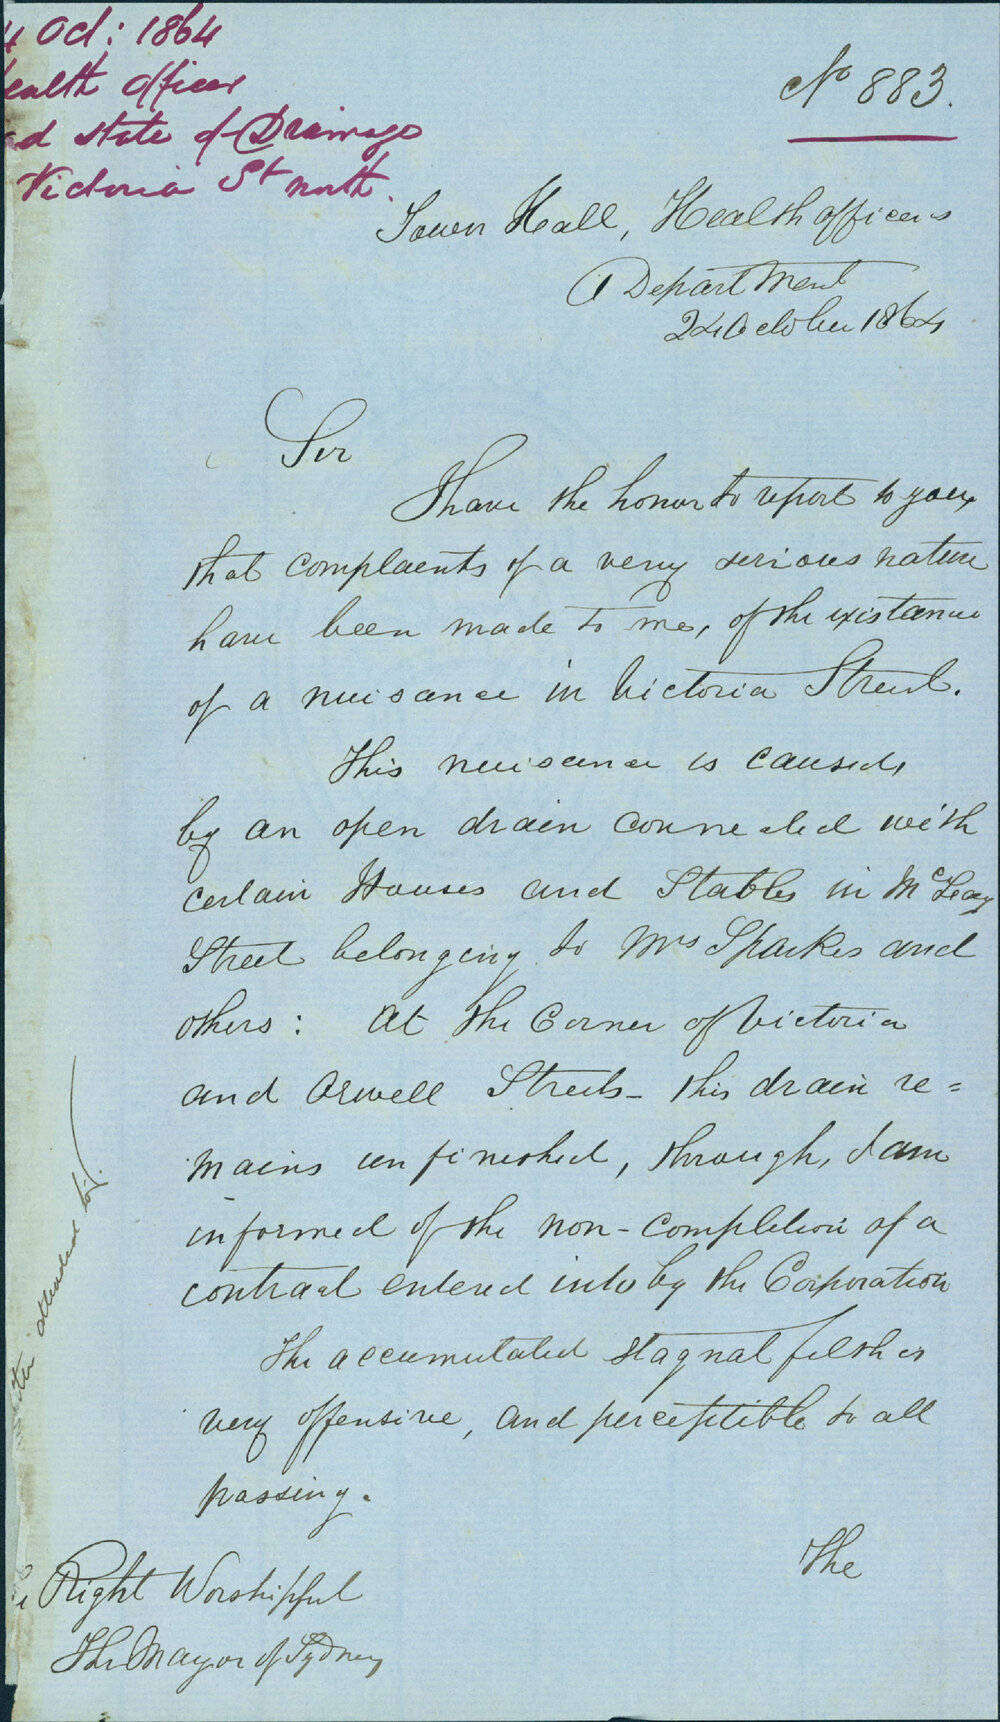 4 Oct: 1864
ealth Officer
ad state of Drainage
Victoria St north.
No 883.
Town Hall, Health officers
Department
24 October 1864
Sir
I have the honor to report to you,
that complaents of a very serious nature
have been made to me, of the existance
of a nuisance in Victoria Street.
This nuisance is caused,
by an open drain connected with
certain Houses and Stables in McLeay
Street belonging to Mrs Sparkes and
others: At the Corner of Victoria
and Orwell Streets - this drain re=
mains unfinished, through, I am
informed of the non-completion of a
contract entered into by the Corporation
The accumulated stagnat filth is
very offensive, and perceptible to all
passing.
The
Right Worshipful
The Mayor of Sydney
matter attended to